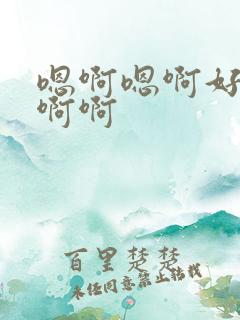 嗯啊嗯啊好
啊啊
百里楚楚
未经同意禁止转载